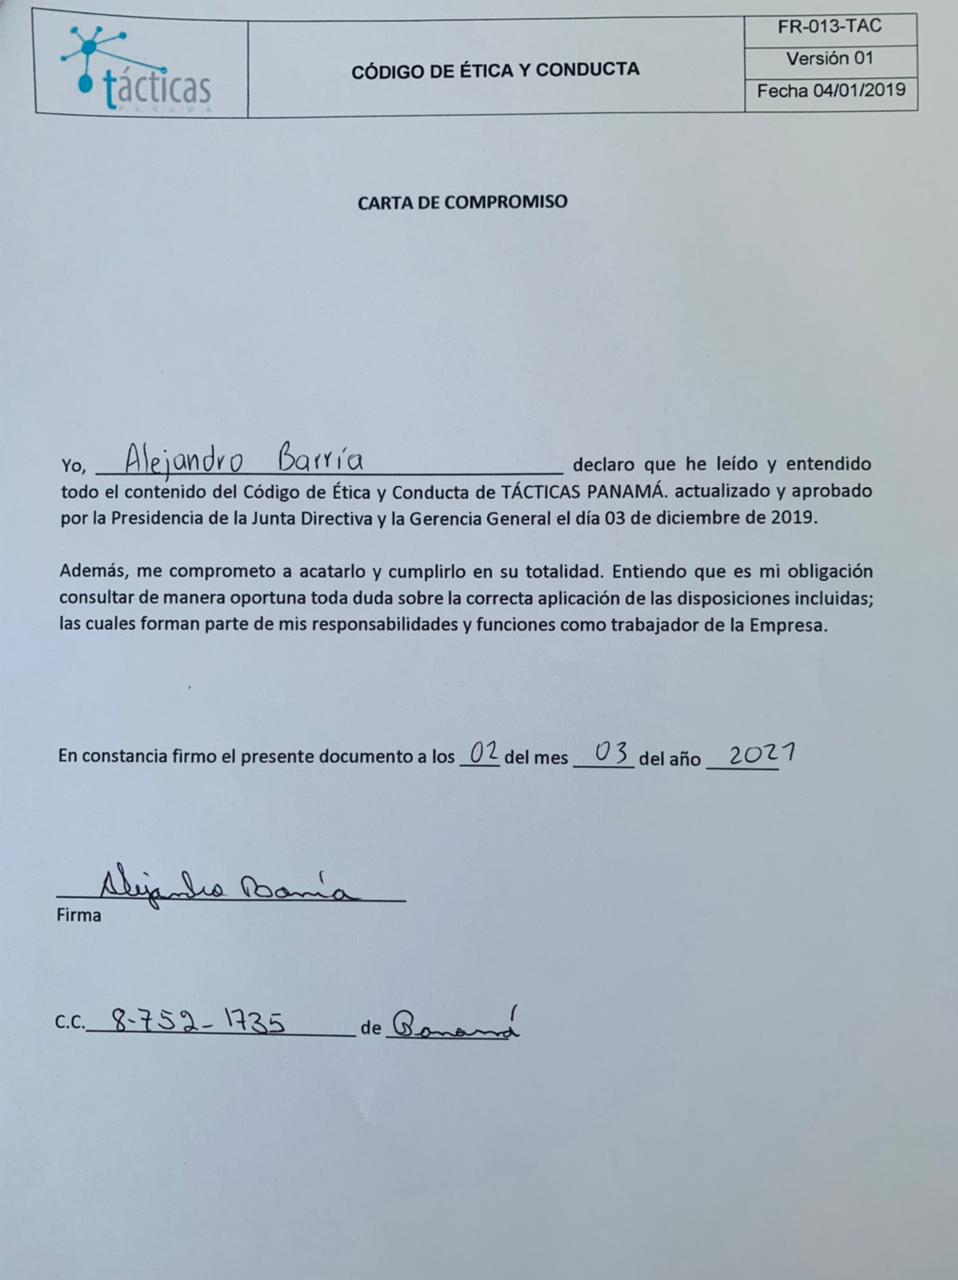 tácticas
PANAMA
CÓDIGO DE ÉTICA Y CONDUCTA
FR-013-TAC
Versión 01
Fecha 04/01/2019
CARTA DE COMPROMISO
Yo, Alejandro Barría declaro que he leído y entendido
todo el contenido del Código de Ética y Conducta de TÁCTICAS PANAMÁ. actualizado y aprobado
por la Presidencia de la Junta Directiva y la Gerencia General el día 03 de diciembre de 2019.
Además, me comprometo a acatarlo y cumplirlo en su totalidad. Entiendo que es mi obligación
consultar de manera oportuna toda duda sobre la correcta aplicación de las disposiciones incluidas;
las cuales forman parte de mis responsabilidades y funciones como trabajador de la Empresa.
En constancia firmo el presente documento a los 02 del mes 03 del año 2021
Alejandro Barría
Firma
C.C. 8-752-1735 de Panamá